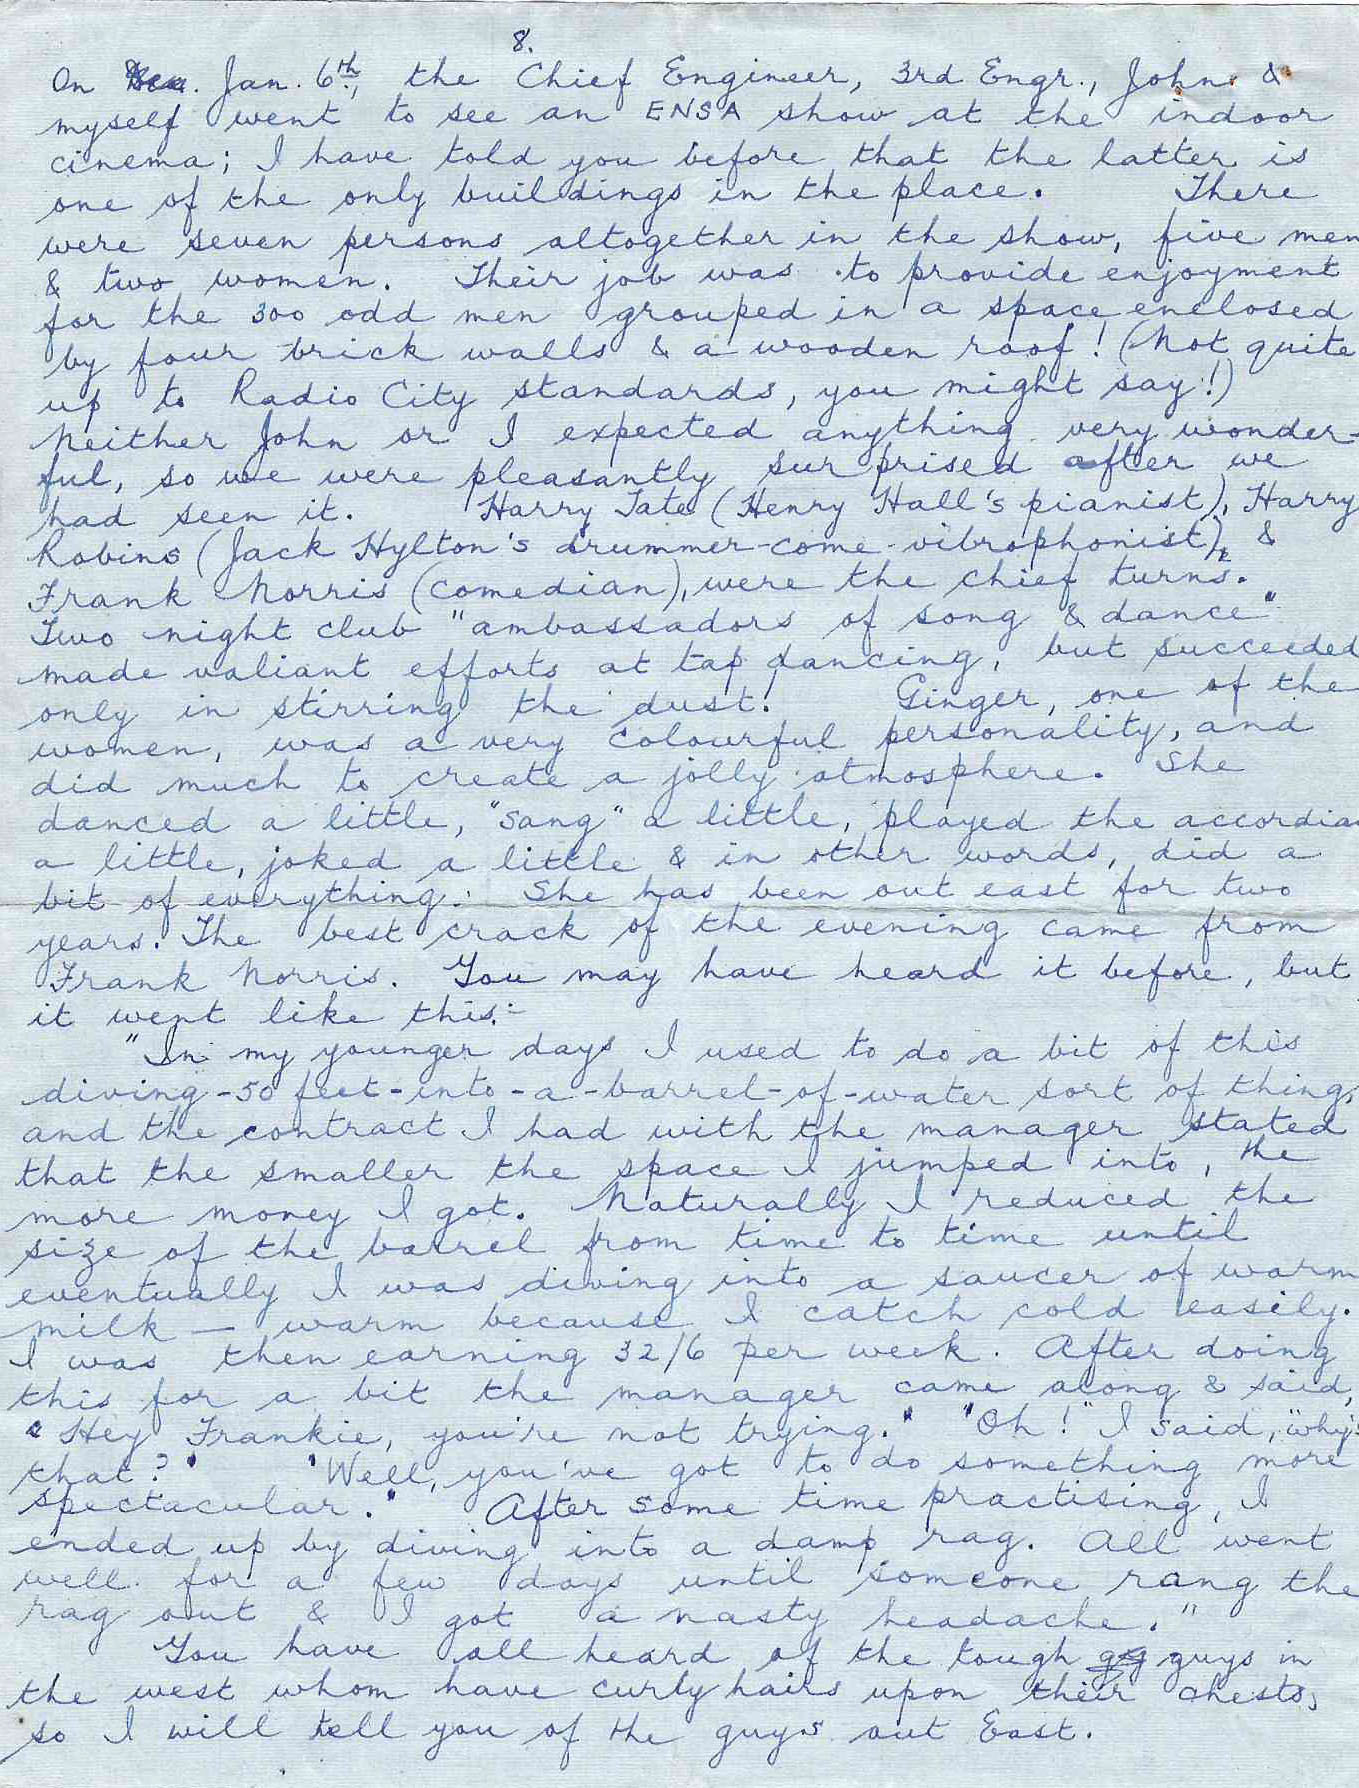 8.
On Dec. Jan. 6th, the Chief Engineer, 3rd Engr., John &
myself went to see an ENSA show at the indoor
cinema; I have told you before that the latter is
one of the only buildings in the place. There
were seven persons altogether in the show, five men
& two women. Their job was to provide enjoyment
for the 300 odd men grouped in a space enclosed
by four brick walls & a wooden roof! (Not quite
up to Radio City standards, you might say!)
Neither John or I expected anything very wonder-
ful, so we were pleasantly surprised after we
had seen it. Harry Tate (Henry Hall's pianist), Harry
Robins (Jack Hylton's drummer-come-vibrophonist), &
Frank Norris (comedian), were the chief turns.
Two night club "ambassadors of song & dance"
made valiant efforts at tap dancing, but succeeded
only in stirring the dust! Ginger, one of the
women, was a very colourful personality, and
did much to create a jolly atmosphere. She
danced a little, "sang" a little, played the accordian
a little, joked a little & in other words, did a
bit of everything. She has been out east for two
years. The best crack of the evening came from
Frank Norris. You may have heard it before, but
it went like this:-
"In my younger days I used to do a bit of this
diving-50 feet-into-a-barrel-of-water sort of thing,
and the contract I had with the manager stated
that the smaller the space I jumped into, the
more money I got. Naturally I reduced the
size of the barrel from time to time until
eventually I was diving into a saucer of warm
milk — warm because I catch cold easily.
I was then earning 32/6 per week. After doing
this for a bit the manager came along & said,
"Hey Frankie, you're not trying." "Oh!" I said, "why's
that?" "Well, you've got to do something more
spectacular." After some time practising, I
ended up by diving into a damp rag. All went
well for a few days until someone rang the
rag out & I got a nasty headache."
You have all heard of the tough guys in
the west whom have curly hairs upon their chests,
so I will tell you of the guys out East.